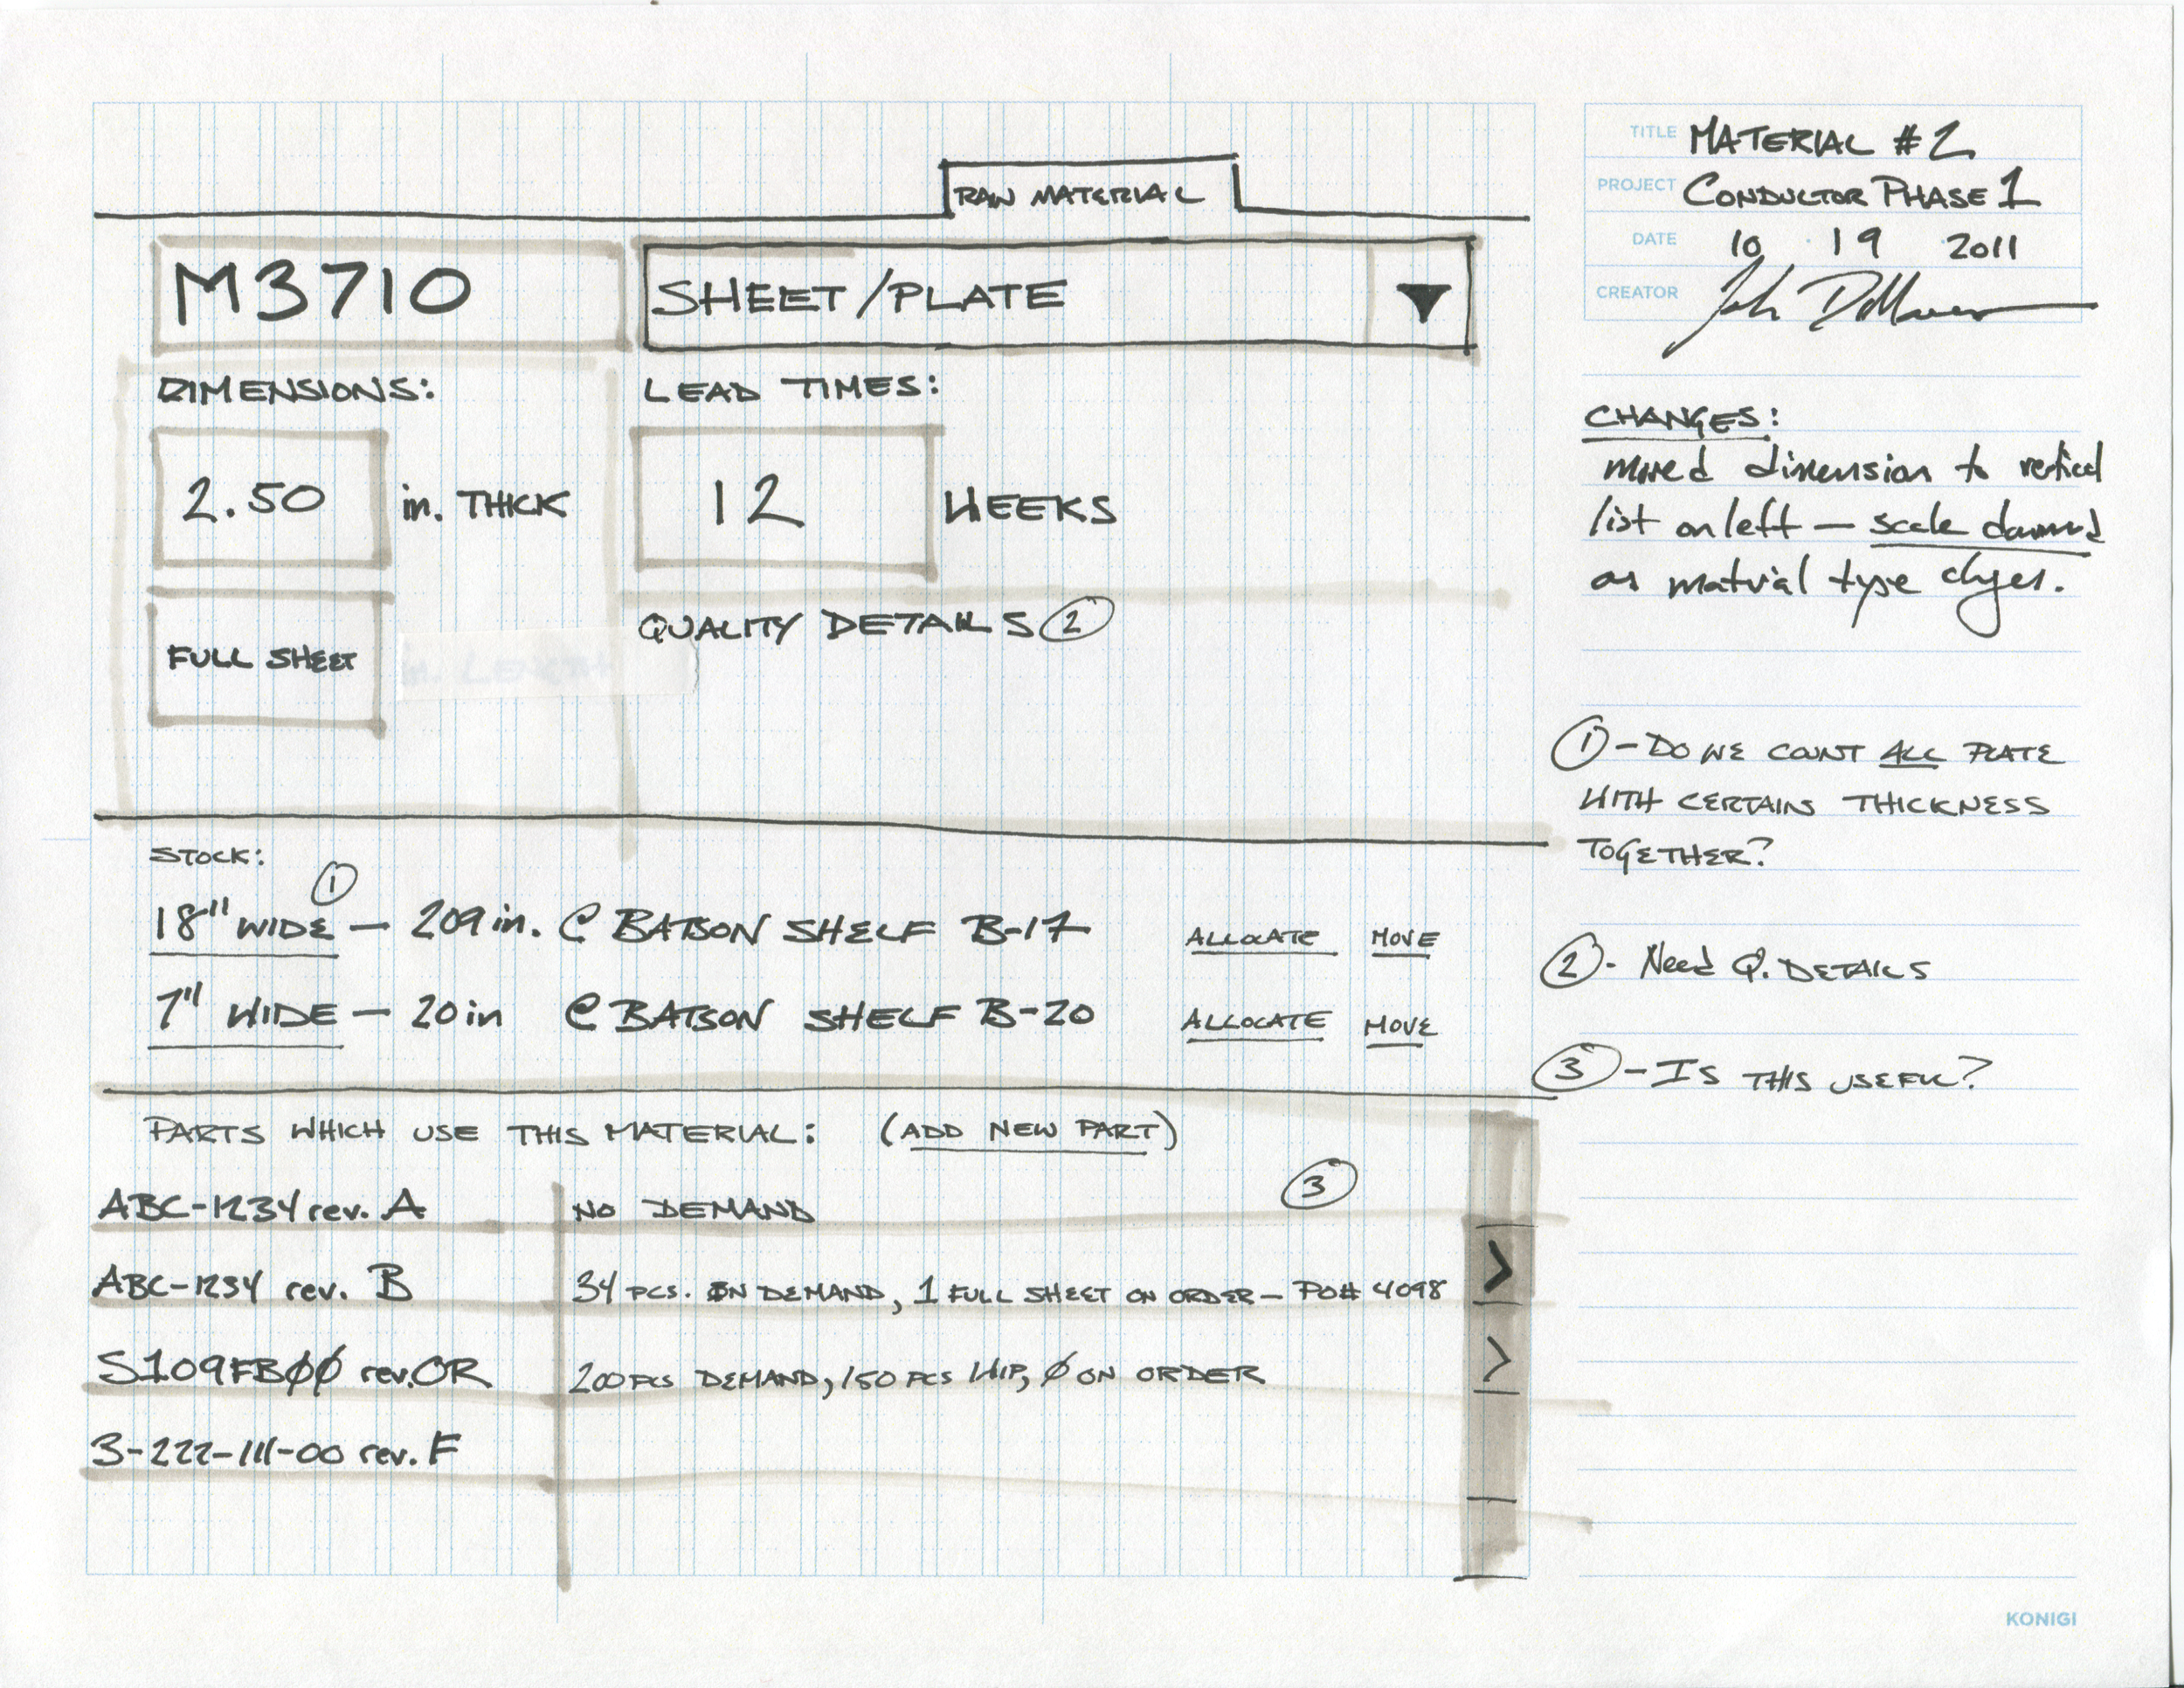 RAW MATERIAL
M3710
SHEET/PLATE
DIMENSIONS:
LEAD TIMES:
2.50 in. THICK
12 WEEKS
FULL SHEET
in. LENGTH
QUALITY DETAILS 2
STOCK:
1
18" WIDE — 209 in. @ BATSON SHELF B-17 ALLOCATE MOVE
7" WIDE — 20 in @ BATSON SHELF B-20 ALLOCATE MOVE
PARTS WHICH USE THIS MATERIAL: (ADD NEW PART)
3
ABC-1234 rev. A NO DEMAND
ABC-1234 rev. B 34 PCS. ON DEMAND, 1 FULL SHEET ON ORDER — PO# 4098
>
S109FBØØ rev. OR 200 PCS DEMAND, 150 PCS WIP, Ø ON ORDER
>
3-222-111-00 rev. F
TITLE MATERIAL #2
PROJECT CONDUCTOR PHASE 1
DATE 10 · 19 · 2011
CREATOR John
CHANGES:
moved dimension to vertical
list on left —
as material type
1 - DO WE COUNT ALL PLATE
WITH CERTAIN THICKNESS
TOGETHER?
2 - Need Q. DETAILS
3 - IS THIS USEFUL?
KONIGI